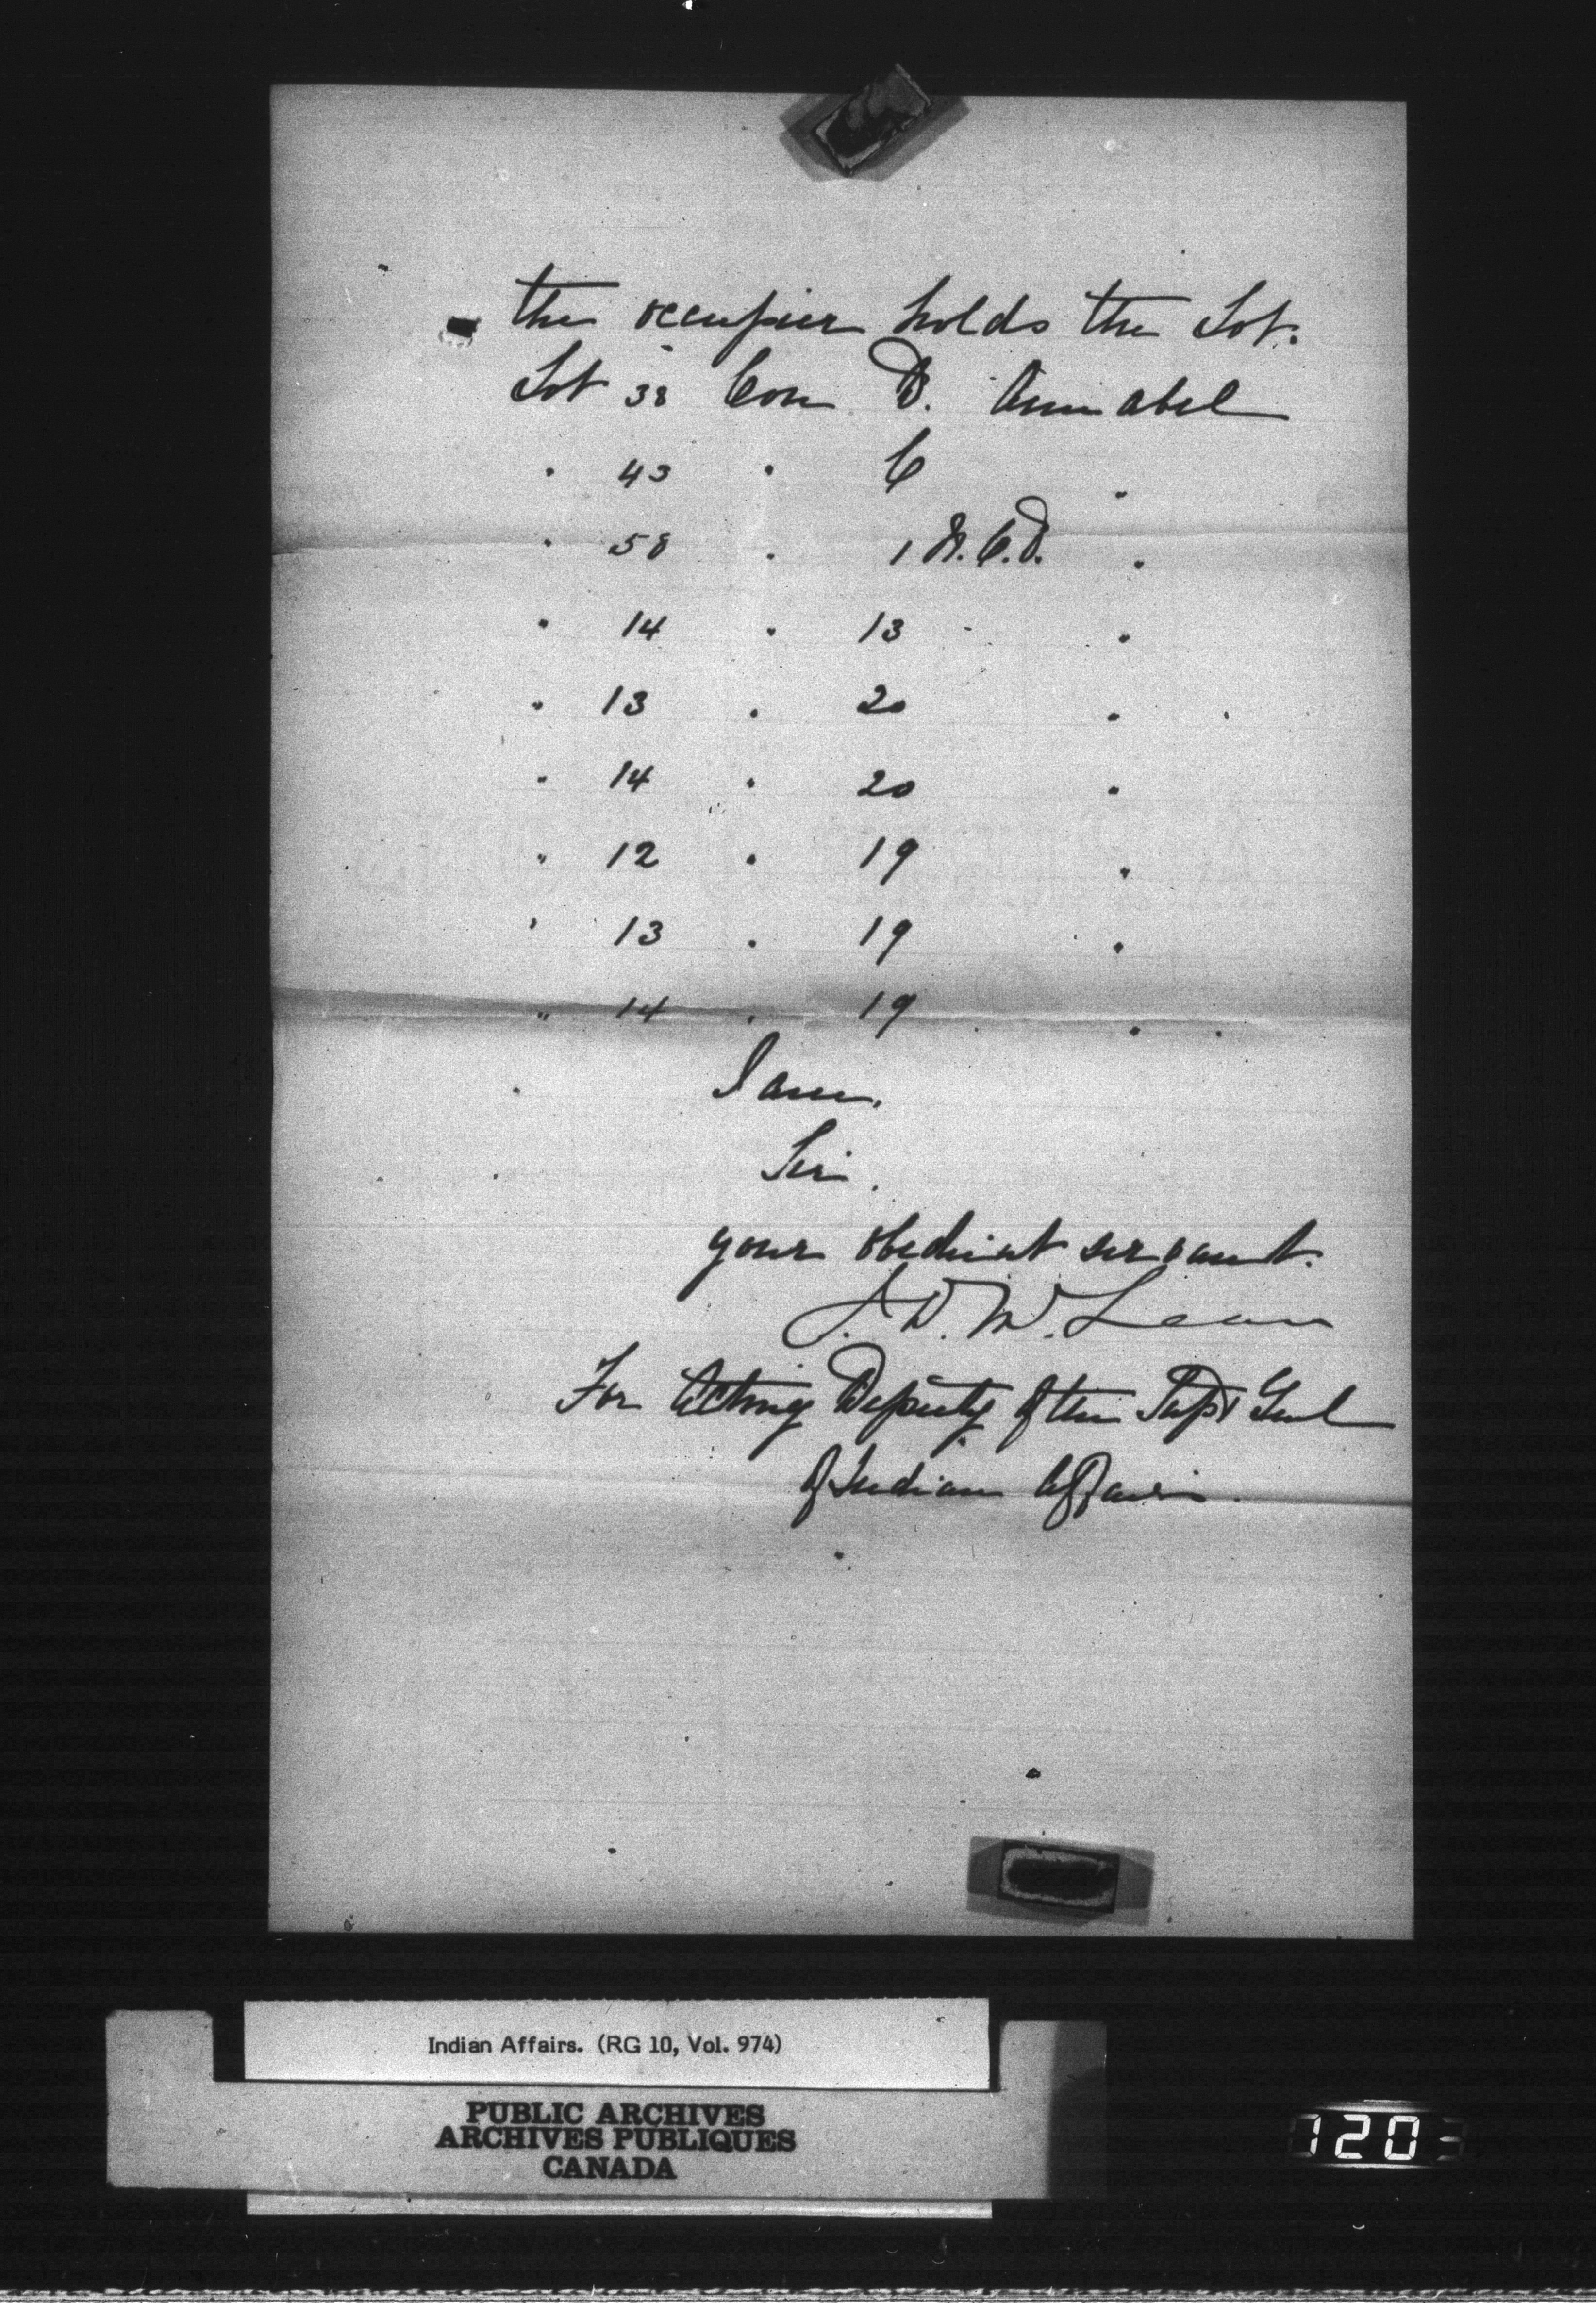 the occupier holds the Lot.
Lot 38 Con D. Amabel
" 43 " C "
" 58 " 1 N.C.D. "
" 14 " 13 "
" 13 " 20 "
" 14 " 20 "
" 12 " 19 "
" 13 " 19 "
" 14 " 19 "
I am,
Sir.
your obedient servant.
J. D. McLean
For Acting Deputy of the Supt Genl
of Indian Affairs.
Indian Affairs. (RG 10, Vol. 974)
PUBLIC ARCHIVES
ARCHIVES PUBLIQUES
CANADA
1203